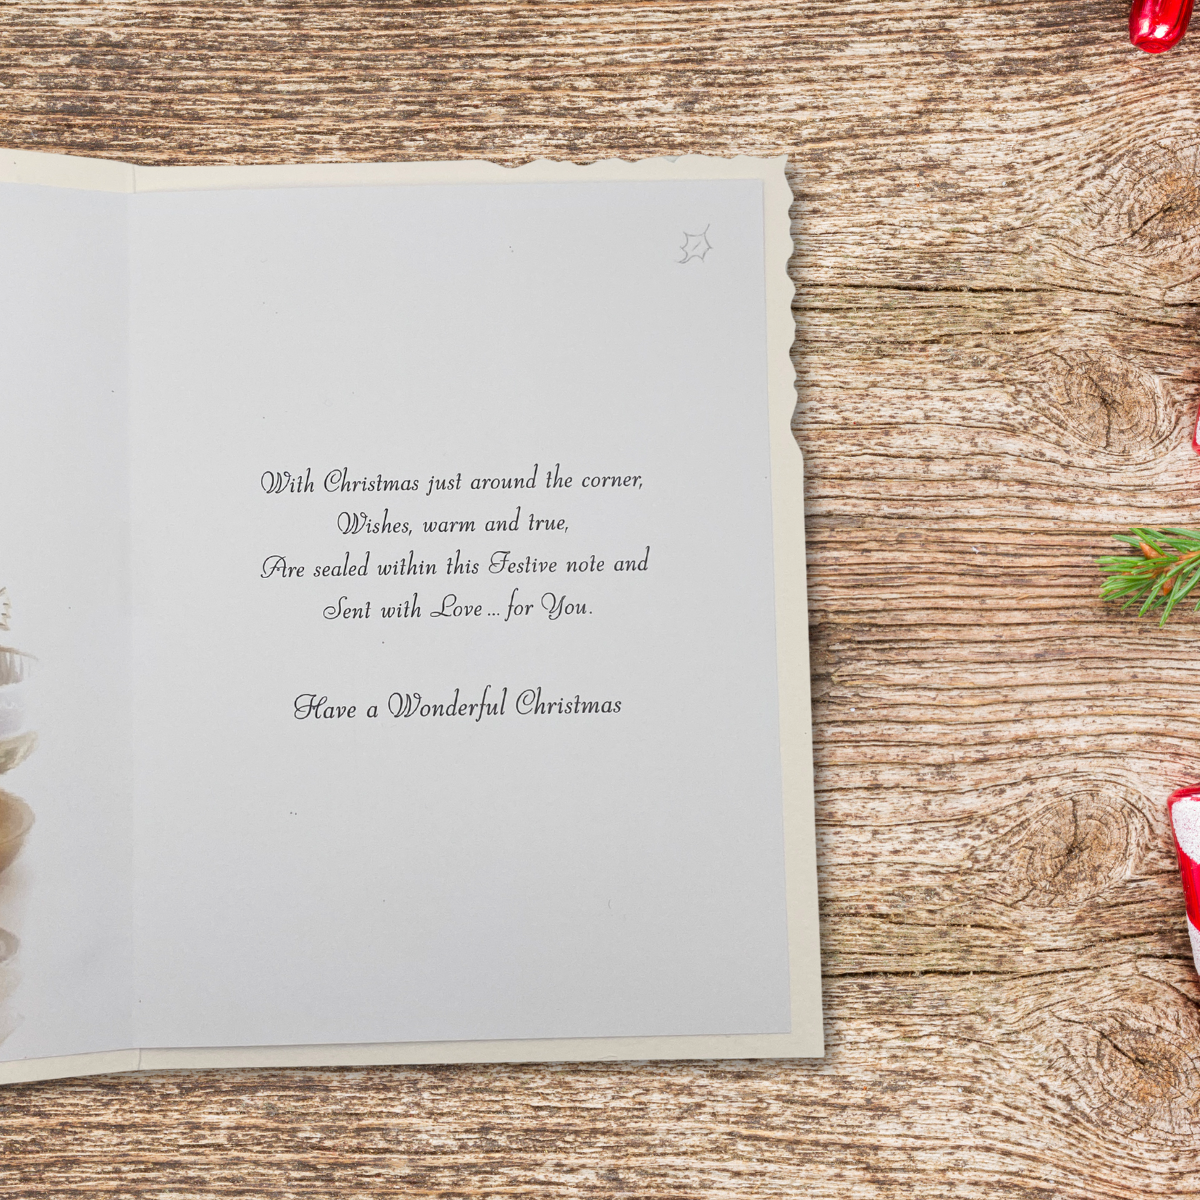 With Christmas just around the corner,
Wishes, warm and true,
Are sealed within this Festive note and
Sent with Love... for You.
Have a Wonderful Christmas